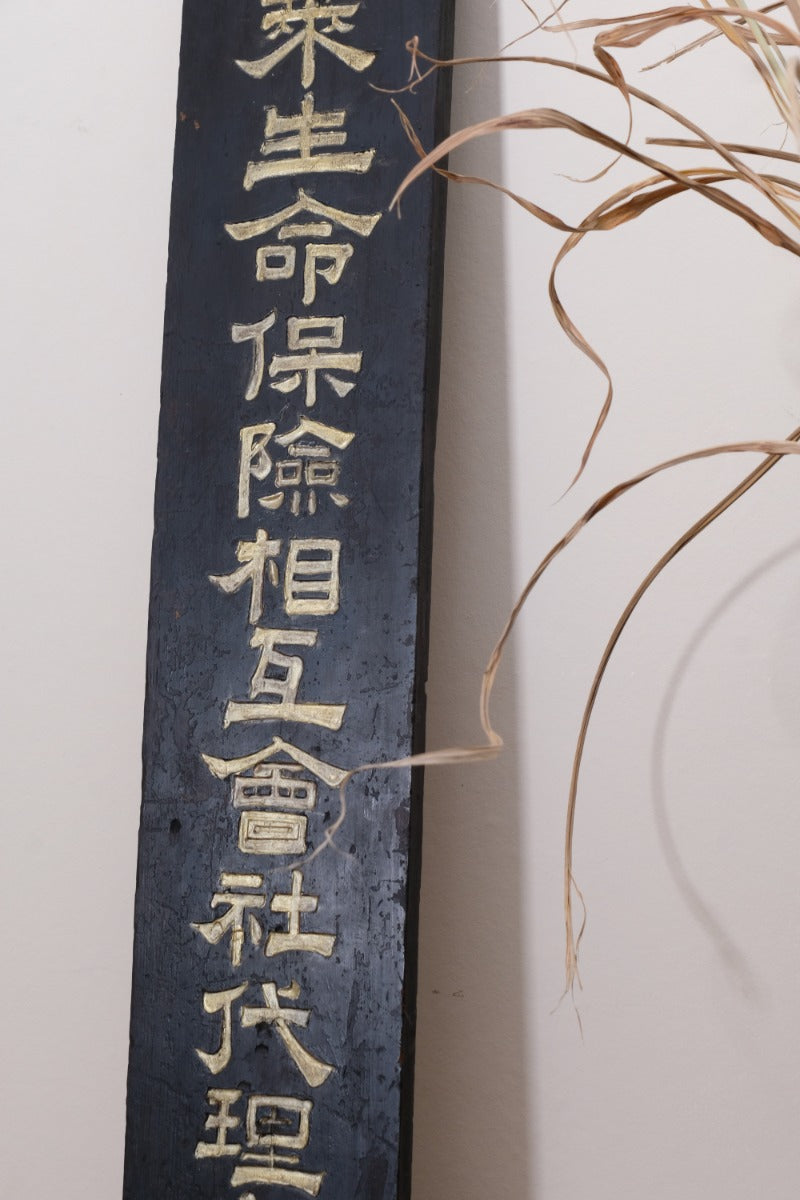 生命保險相互會社代理